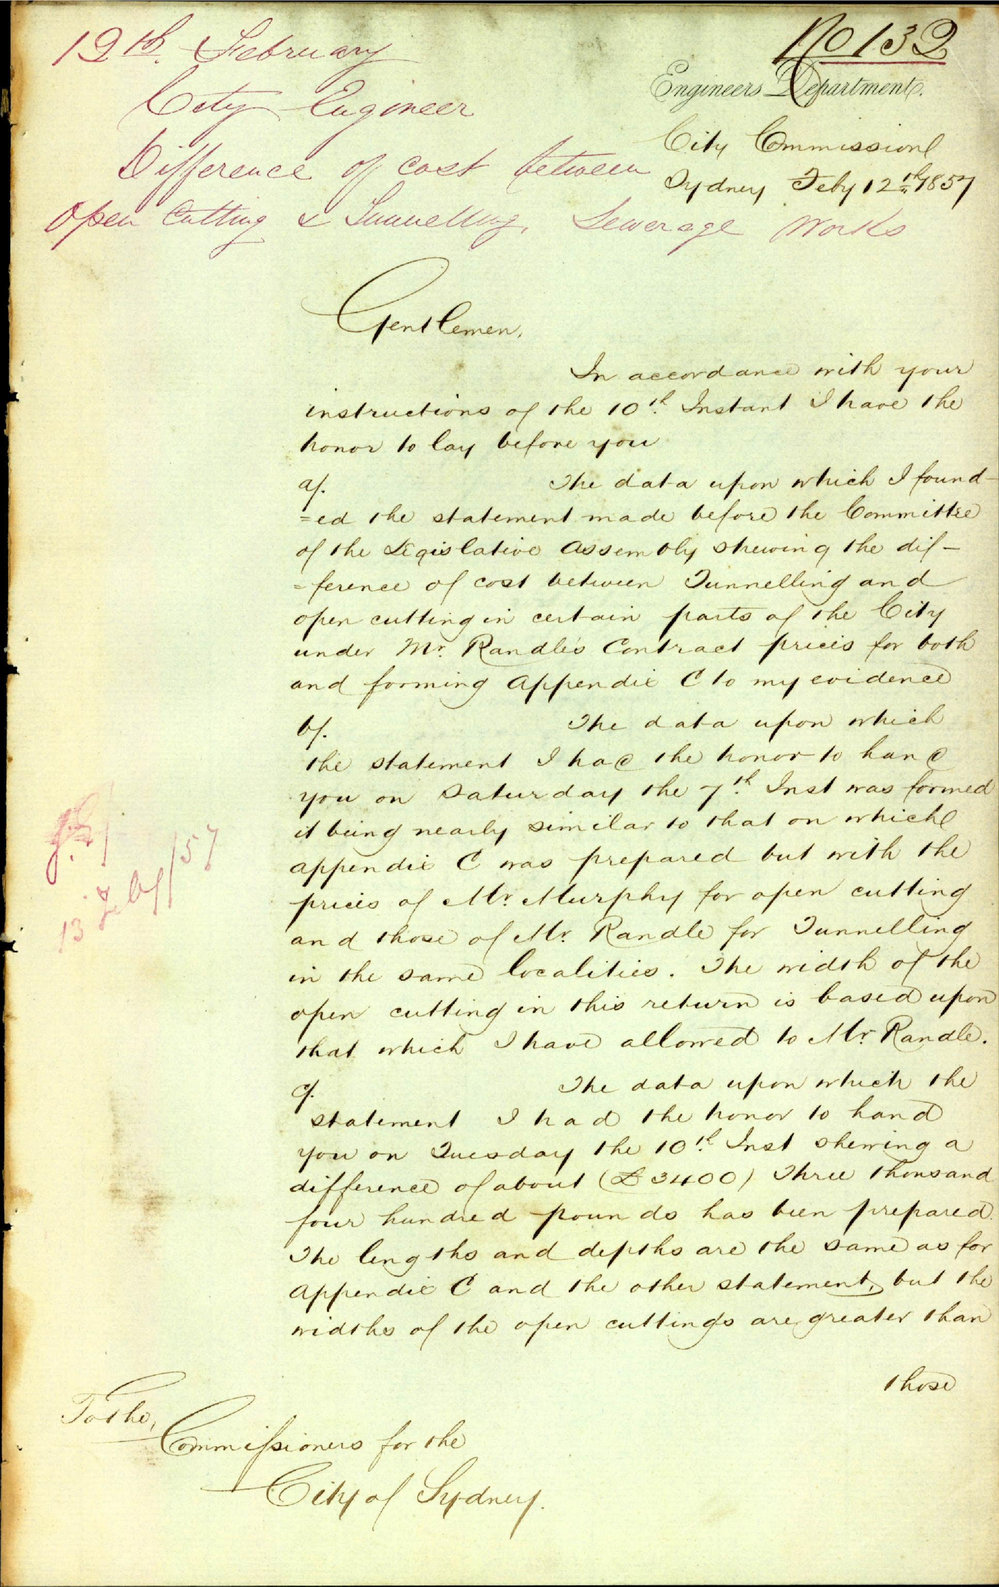 No 132
12th. February
City Engineer
Difference of cost between
Open Cutting & Tunnelling, Sewerage Works
Engineers Department.
City Commission
Sydney Feby 12th. 1857
Gentlemen,
In accordance with your
instructions of the 10th. Instant I have the
honor to lay before you
a/. The data upon which I found-
=ed the statement made before the Committee
of the Legislative Assembly shewing the dif-
=ference of cost between Tunnelling and
open cutting in certain parts of the City
under Mr. Randle's Contract prices for both
and forming Appendix C to my evidence
b/. The data upon which
the statement I had the honor to hand
you on Saturday the 7th. Inst was formed
it being nearly similar to that on which
appendix C was prepared but with the
prices of Mr. Murphy for open cutting
and those of Mr. Randle for Tunnelling
in the same localities. The width of the
open cutting in this return is based upon
that which I have allowed to Mr. Randle.
c/. The data upon which the
statement I had the honor to hand
you on Tuesday the 10th. Inst shewing a
difference of about (£3400) Three thousand
four hundred pounds has been prepared.
The lengths and depths are the same as for
appendix C and the other statement, but the
widths of the open cuttings are greater than
those
13 Feby/57
To the,
Commissioners for the
City of Sydney.